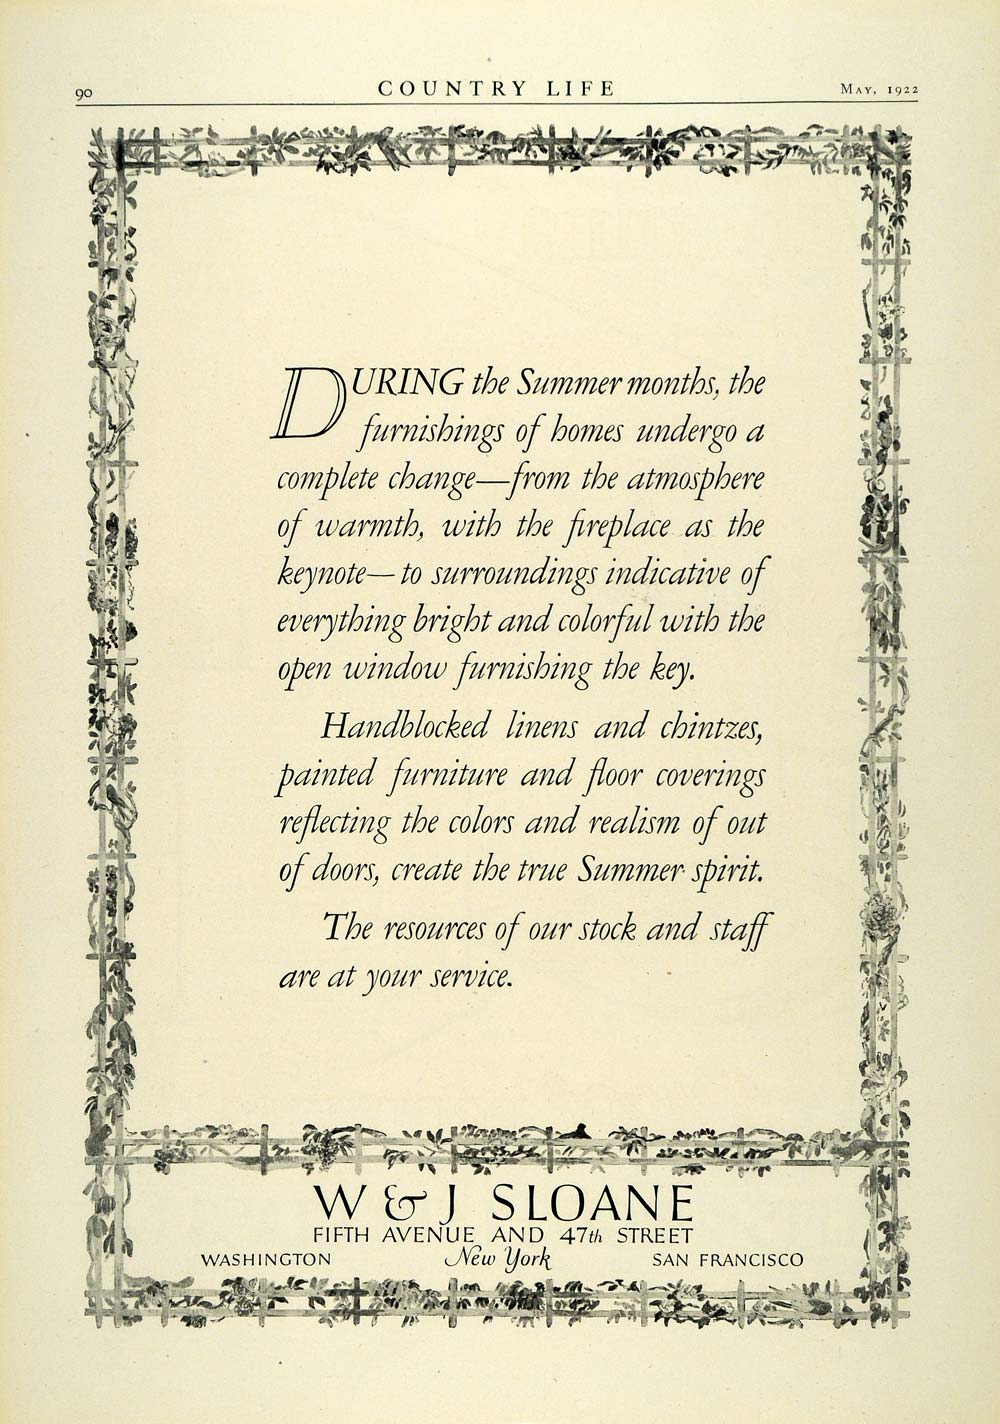 90
COUNTRY LIFE
MAY, 1922
DURING the Summer months, the
furnishings of homes undergo a
complete change—from the atmosphere
of warmth, with the fireplace as the
keynote—to surroundings indicative of
everything bright and colorful with the
open window furnishing the key.
Handblocked linens and chintzes,
painted furniture and floor coverings
reflecting the colors and realism of out
of doors, create the true Summer spirit.
The resources of our stock and staff
are at your service.
W & J SLOANE
FIFTH AVENUE AND 47th STREET
WASHINGTON New York SAN FRANCISCO